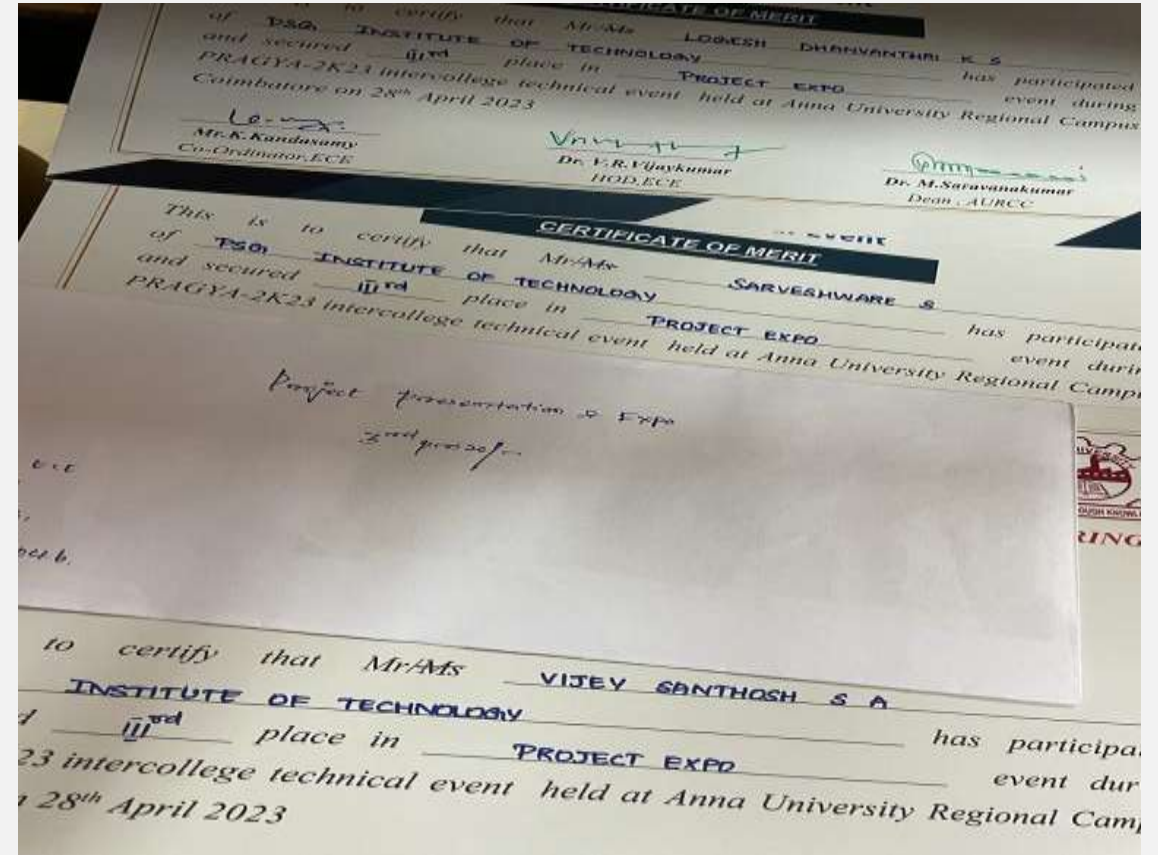 CERTIFICATE OF MERIT
to certify that Mr/Ms LOGESH DHANVANTHRI K S
of PSG INSTITUTE OF TECHNOLOGY has participated
and secured IIIrd place in PROJECT EXPO event during
PRAGYA-2K23 intercollege technical event held at Anna University Regional Campus
Coimbatore on 28th April 2023
Mr.K.Kandasamy
Co-Ordinator,ECE
Dr. V.R.Vijaykumar
HOD,ECE
Dr. M.Saravanakumar
Dean , AURCC
event
CERTIFICATE OF MERIT
This is to certify that Mr/Ms SARVESHWARE S
of PSG INSTITUTE OF TECHNOLOGY has participate
and secured IIIrd place in PROJECT EXPO event durin
PRAGYA-2K23 intercollege technical event held at Anna University Regional Camp
Project presentation & Expo
3rd
RING
to certify that Mr/Ms VIJEY SANTHOSH S A
INSTITUTE OF TECHNOLOGY has participa
IIIrd place in PROJECT EXPO event dur
23 intercollege technical event held at Anna University Regional Cam
28th April 2023